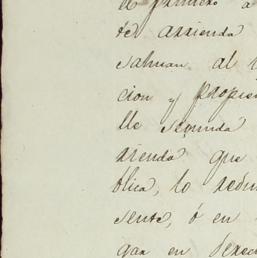 el primero a
te, arrienda
salman al
cion y propie
lle segunda
rienda que
blica, lo redu
sente, ó en
gar en derec